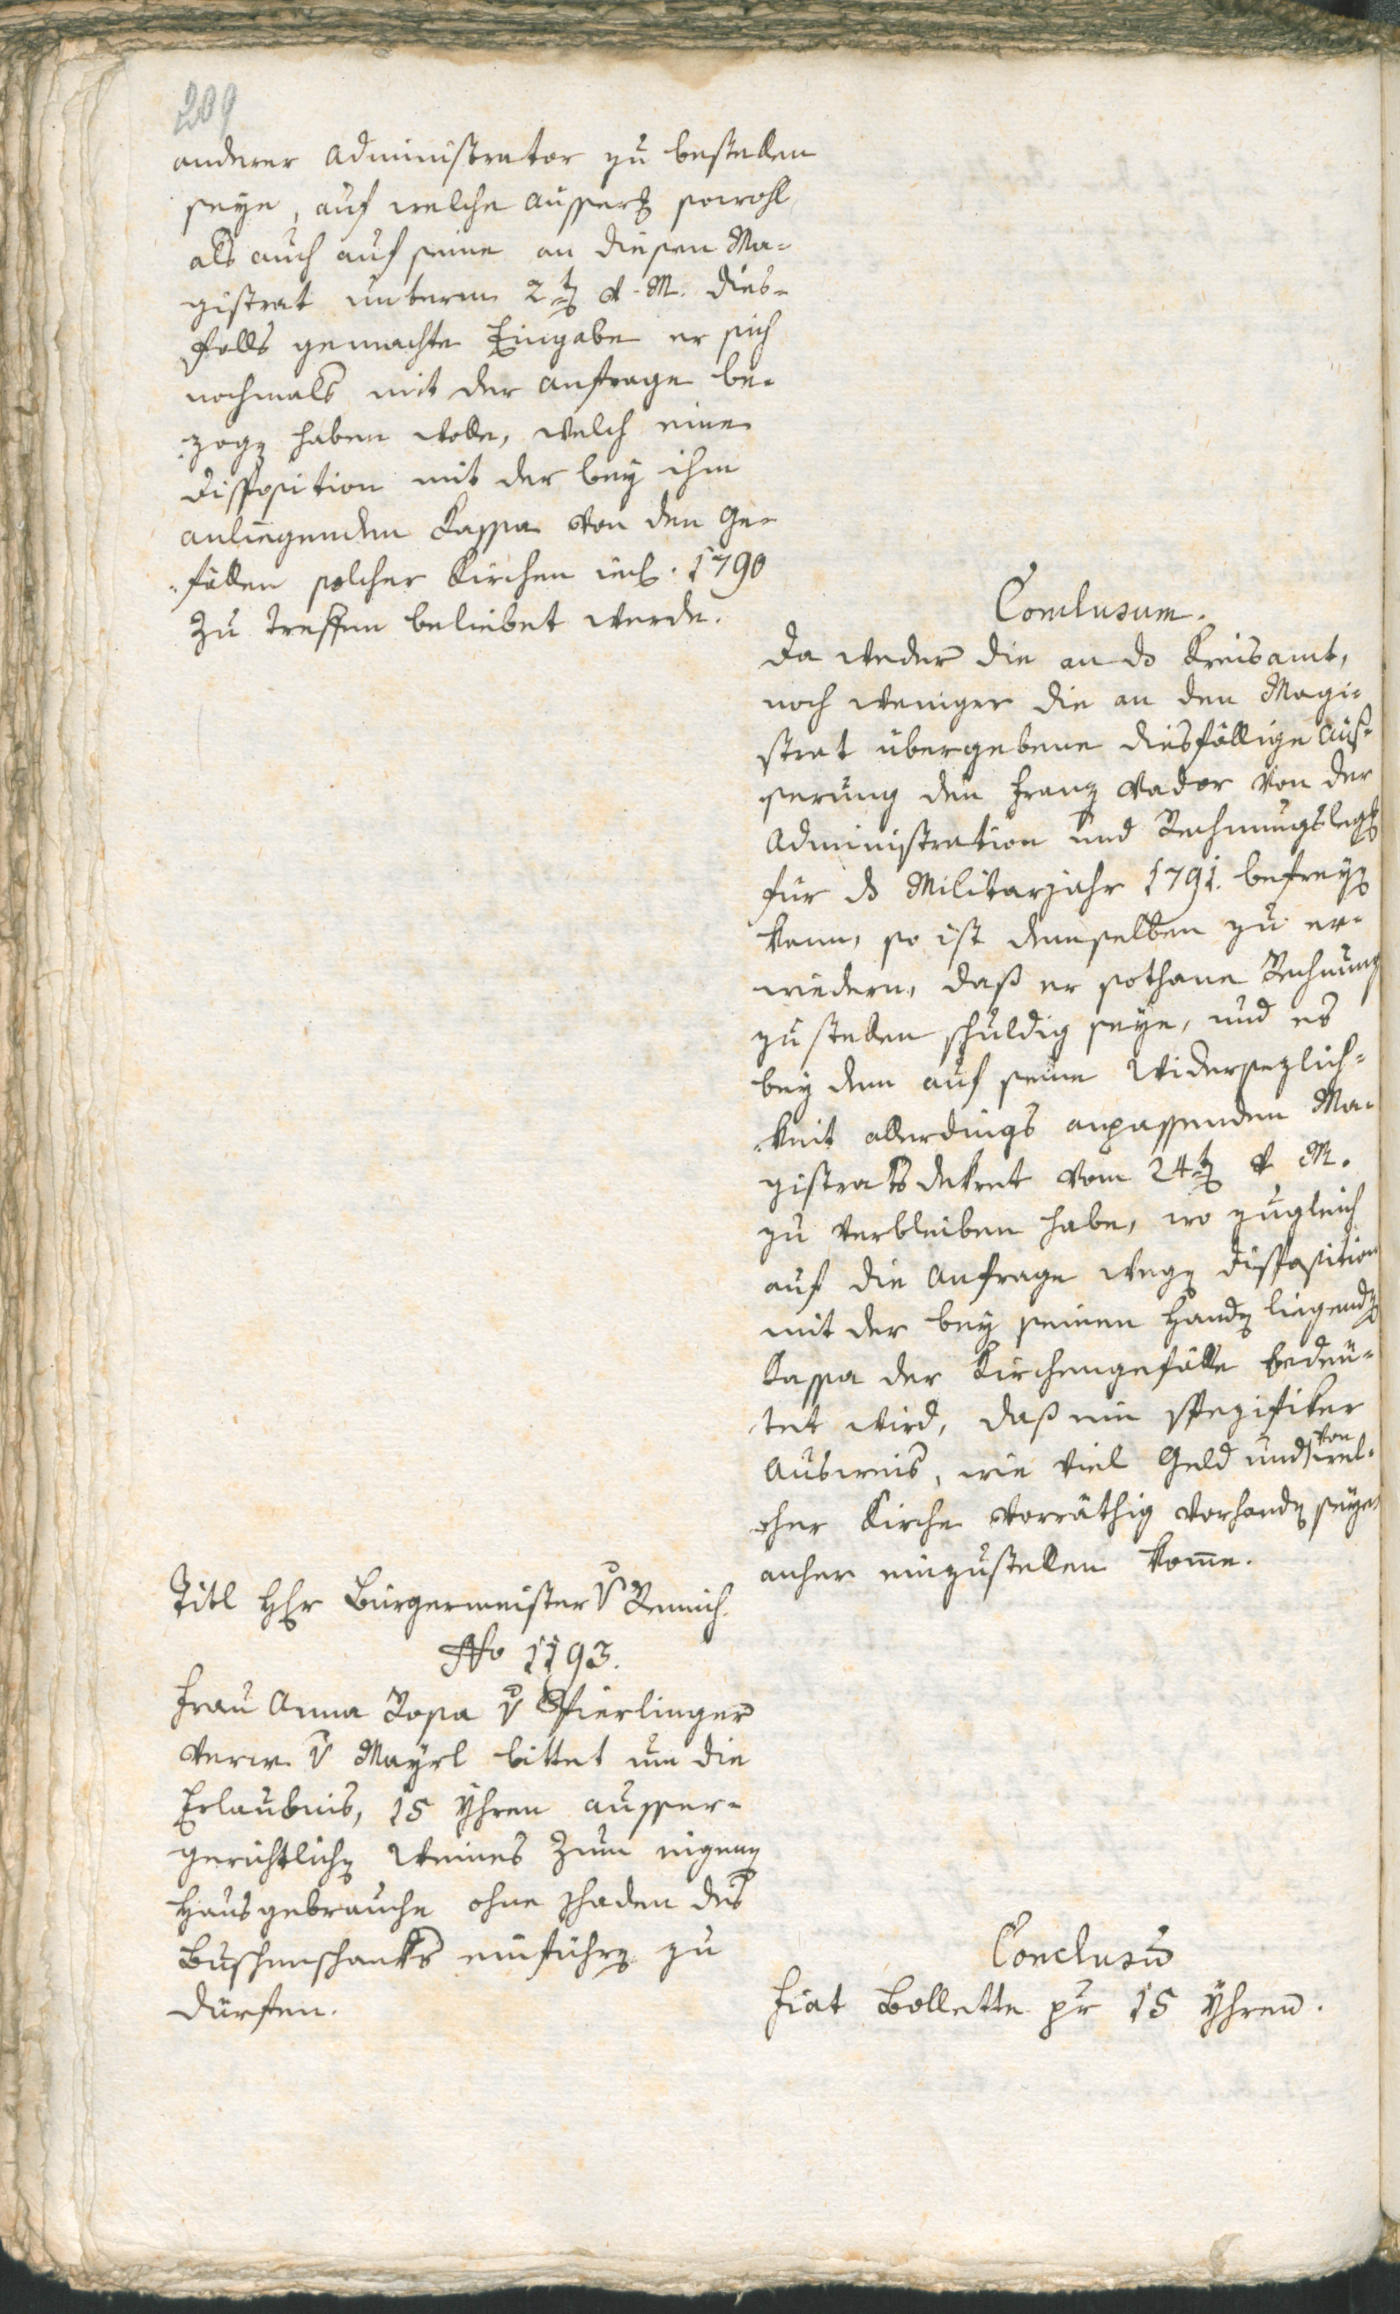 209
anderer Administrator zu bestellen
seye, auf welche ausserg sowohl
als auch auf seine an diesen Ma-
gistrat unterm 2t v. M. dies-
falls gemachte Eingabe er sich
nochmals mit der Anfrage be-
zogen haben wolle, welch eine
Disposition mit der bey ihm
anliegenden Kassa von den Ge-
fällen solcher Kirchen incl. 1790
zu treffen beliebet werde.
Conclusum.
Da weder die an ds Kreisamt,
noch weniger die an den Magi-
strat übergebene diesfällige Aüs-
serung den Franz Vador von der
Administration und Rechnungslegg
für ds Militarjahr 1791. befreyen
kann, so ist demselben zu er-
wiedern, daß er sothane Rechnung
zu stellen schuldig seye, und es
bey dem auf seine Widersezlich-
keit allerdings anpassenden Ma-
gistratsdekret vom 24t v M.
zu verbleiben habe, wo zugleich
auf die Anfrage wegen Disposition
mit der bey seinen Handen liegenden
Kassa der Kirchengefälle bedeu-
tet wird, daß ein spezifiker
Ausweis, wie viel Geld und von wel-
cher Kirche vorräthig vorhanden seye
anher einzustellen komme.
Titl HHr Bürgermeister v Remich.
No 1193.
Frau Anna Rosa v Pfierlinger
Verw. v Mayrl bittet um die
Erlaubnis, 15 Yhren ausser-
gerichtlichen Weines zum eigenen
Hausgebrauche ohne Schaden des
Buschenschanks einführen zu
dürfen.
Conclusum
Fiat Bollette pr 15 Yhren.